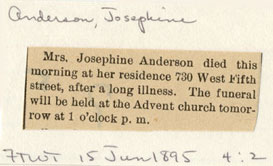 Anderson, Josephine
Mrs. Josephine Anderson died this
morning at her residence 730 West Fifth
street, after a long illness. The funeral
will be held at the Advent church tomor-
row at 1 o'clock p. m.
FTWT 15 Jun 1895 4:2